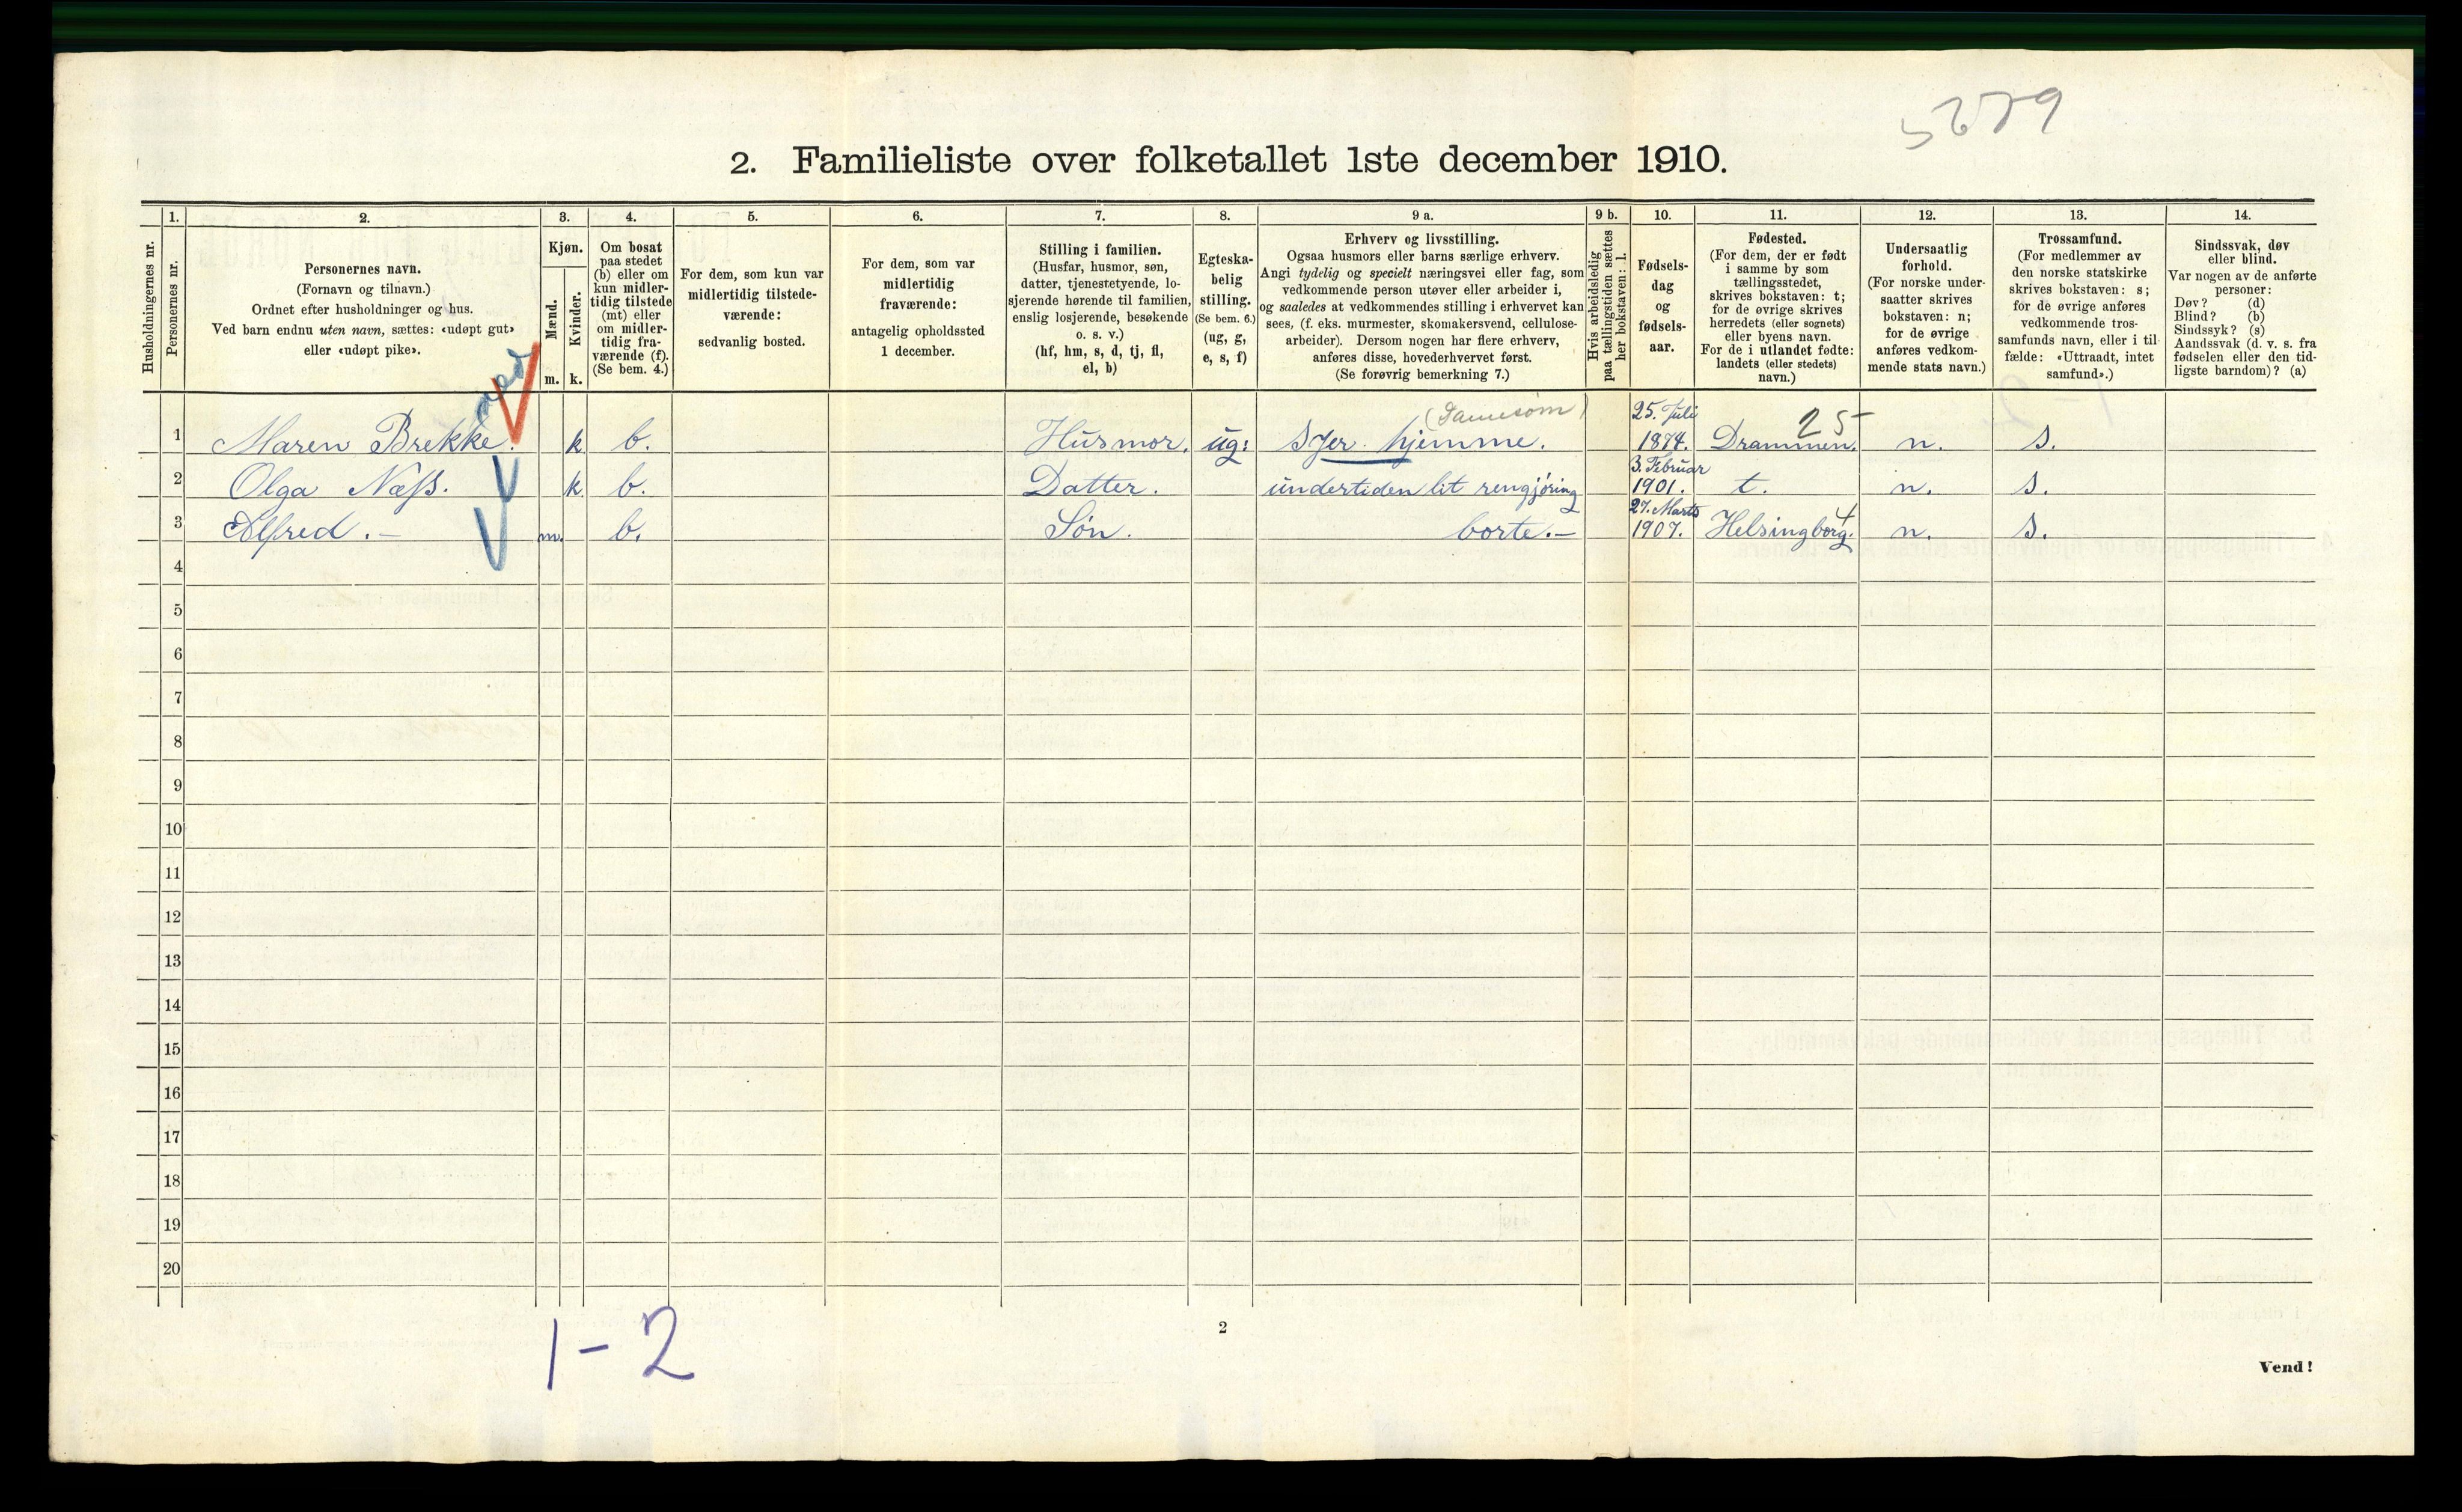 5279
2. Familieliste over folketallet 1ste december 1910.
Husholdningernes nr.
1.
Personernes nr.
2.
Personernes navn.
(Fornavn og tilnavn.)
Ordnet efter husholdninger og hus.
Ved barn endnu uten navn, sættes: «udøpt gut»
eller «udøpt pike».
3.
Kjøn.
Mænd.
Kvinder.
m. k.
4.
Om bosat
paa stedet
(b) eller om
kun midler-
tidig tilstede
(mt) eller
om midler-
tidig fra-
værende (f).
(Se bem. 4.)
5.
For dem, som kun var
midlertidig tilstede-
værende:
sedvanlig bosted.
6.
For dem, som var
midlertidig
fraværende:
antagelig opholdssted
1 december.
7.
Stilling i familien.
(Husfar, husmor, søn,
datter, tjenestetyende, lo-
sjerende hørende til familien,
enslig losjerende, besøkende
o. s. v.)
(hf, hm, s, d, tj, fl,
el, b)
8.
Egteska-
belig
stilling.
(Se bem. 6.)
(ug, g,
e, s, f)
9 a.
Erhverv og livsstilling.
Ogsaa husmors eller barns særlige erhverv.
Angi tydelig og specielt næringsvei eller fag, som
vedkommende person utøver eller arbeider i,
og saaledes at vedkommendes stilling i erhvervet kan
sees, (f. eks. murmester, skomakersvend, cellulose-
arbeider). Dersom nogen har flere erhverv,
anføres disse, hovederhvervet først.
(Se forøvrig bemerkning 7.)
9 b.
Hvis arbeidsledig
paa tællingstiden sættes
her bokstaven: l.
10.
Fødsels-
dag
og
fødsels-
aar.
11.
Fødested.
(For dem, der er født
i samme by som
tællingsstedet,
skrives bokstaven: t;
for de øvrige skrives
herredets (eller sognets)
eller byens navn.
For de i utlandet fødte:
landets (eller stedets)
navn.)
12.
Undersaatlig
forhold.
(For norske under-
saatter skrives
bokstaven: n;
for de øvrige
anføres vedkom-
mende stats navn.)
13.
Trossamfund.
(For medlemmer av
den norske statskirke
skrives bokstaven: s;
for de øvrige anføres
vedkommende tros-
samfunds navn, eller i til-
fælde: «Uttraadt, intet
samfund».)
14.
Sindssvak, døv
eller blind.
Var nogen av de anførte
personer:
Døv? (d)
Blind? (b)
Sindssyk? (s)
Aandssvak (d. v. s. fra
fødselen eller den tid-
ligste barndom)? (a)
1 Maren Brekke. k b. Husmor. ug: syer hjemme. (Damesøm) 25. Juli 1874. Drammen. 25 n. s.
2 Olga Næss. k. b. Datter. undertiden lit rengjøring 3. Februar 1901. t. n. s.
3 Alfred. – m. b. Søn. borte. – 27. Marts 1907. Helsingborg. 4 n. s.
4
5
6
7
8
9
10
11
12
13
14
15
16
17
18
19
20
1 - 2
2
Vend!